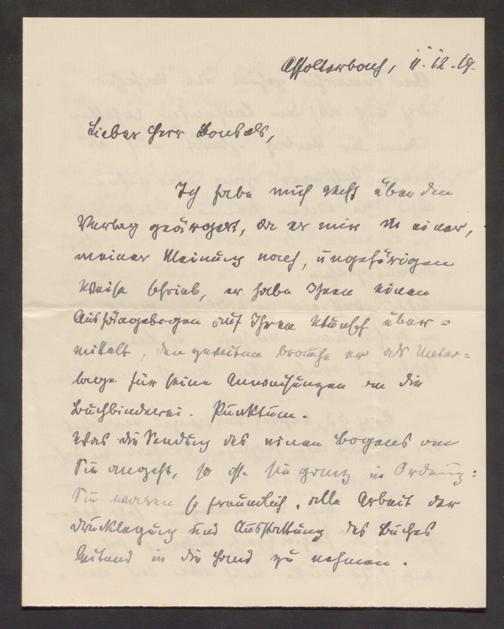 Affolterbach, 11.12.19.
Lieber Herr Bonsels,
Ich habe mich recht über den
Verlag geärgert, da er mir in einer,
meiner Meinung nach, ungehörigen
Weise schrieb, er habe Ihnen einen
Aushängebogen auf Ihren Wunsch über=
mittelt, den zweiten brauche er als Unter=
lage für seine Anweisungen an die
Buchbinderei. Punktum.
Was die Sendung des einen Bogens an
Sie angeht, so ist sie ganz in Ordnung:
Sie waren so freundlich, alle Arbeit der
Drucklegung und Ausstattung des Buches
in die Hand zu nehmen.